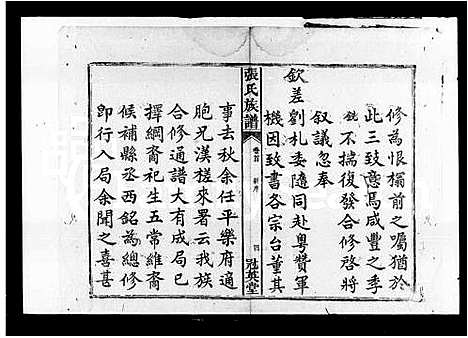 修為恨搨前之囑猶於
此三致意焉咸豐之季
銑不揣復發合修啓將
叙議忽奉
欽差劉札委隨同赴粵贊軍
機因致書各宗台董其
張氏族譜
卷首
新序
四
冠英堂
事去秋余任平樂府適
胞兄漢槎來署云我族
合修通譜大有成局已
擇綱裔祀生五常維裔
候補縣丞西銘為總修
即行入局余聞之喜甚